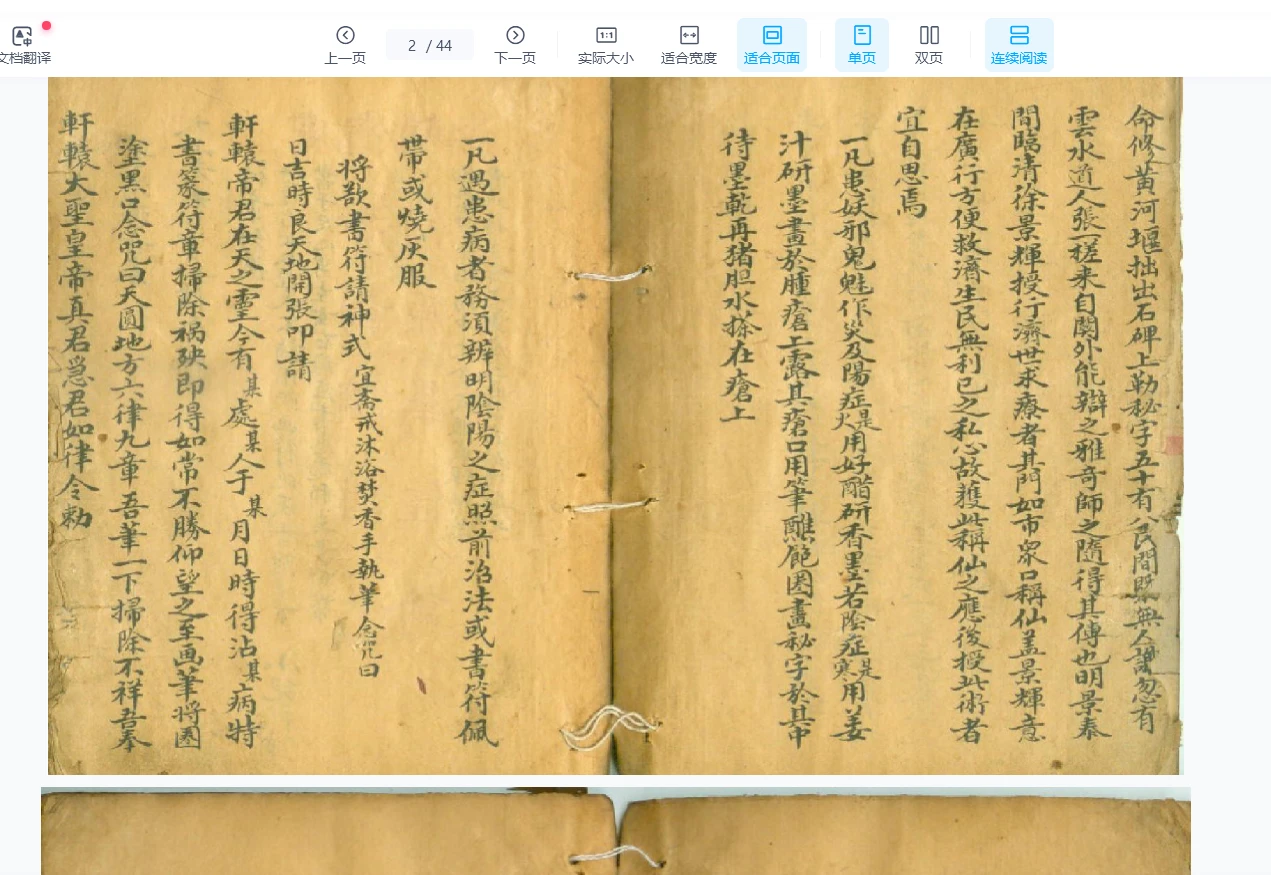 文档翻译
上一页
2 / 44
下一页
1:1
实际大小
适合宽度
适合页面
单页
双页
连续阅读
命修黄河堰拙出石碑上勒秘字五十有八民間既無人識忽有
雲水道人張一槎来自關外能辯之雅奇師之隨得其傳也明景泰
間臨清徐景輝授行濟世求療者其門如市衆口稱仙盖景輝意
在廣行方便救濟生民無利已之私心故獲此稱仙之應後授此術者
宜自思焉
一凡患妖邪鬼魅作災及陽症是火用好醋研香墨若陰症是寒用姜
汁研墨畫於腫瘡上露其瘡口用筆蘸範圏畫秘字於其中
待墨乾再猪胆水搽在瘡上
一凡遇患病者務須辨明陰陽之症照前治法或書符佩
帯或燒灰服
将欲書符請神式 宜斋戒沐浴焚香手執筆念咒曰
日吉時良天地開張叩請
軒轅帝君在天之靈今有某處某人于某月日時得沾某病特
書篆符章掃除禍殃即得如常不勝仰望之至画筆将圏
塗黑口念咒曰天圓地方六律九章吾筆一下掃除不祥吾奉
軒轅大聖皇帝真君急君如律令勅